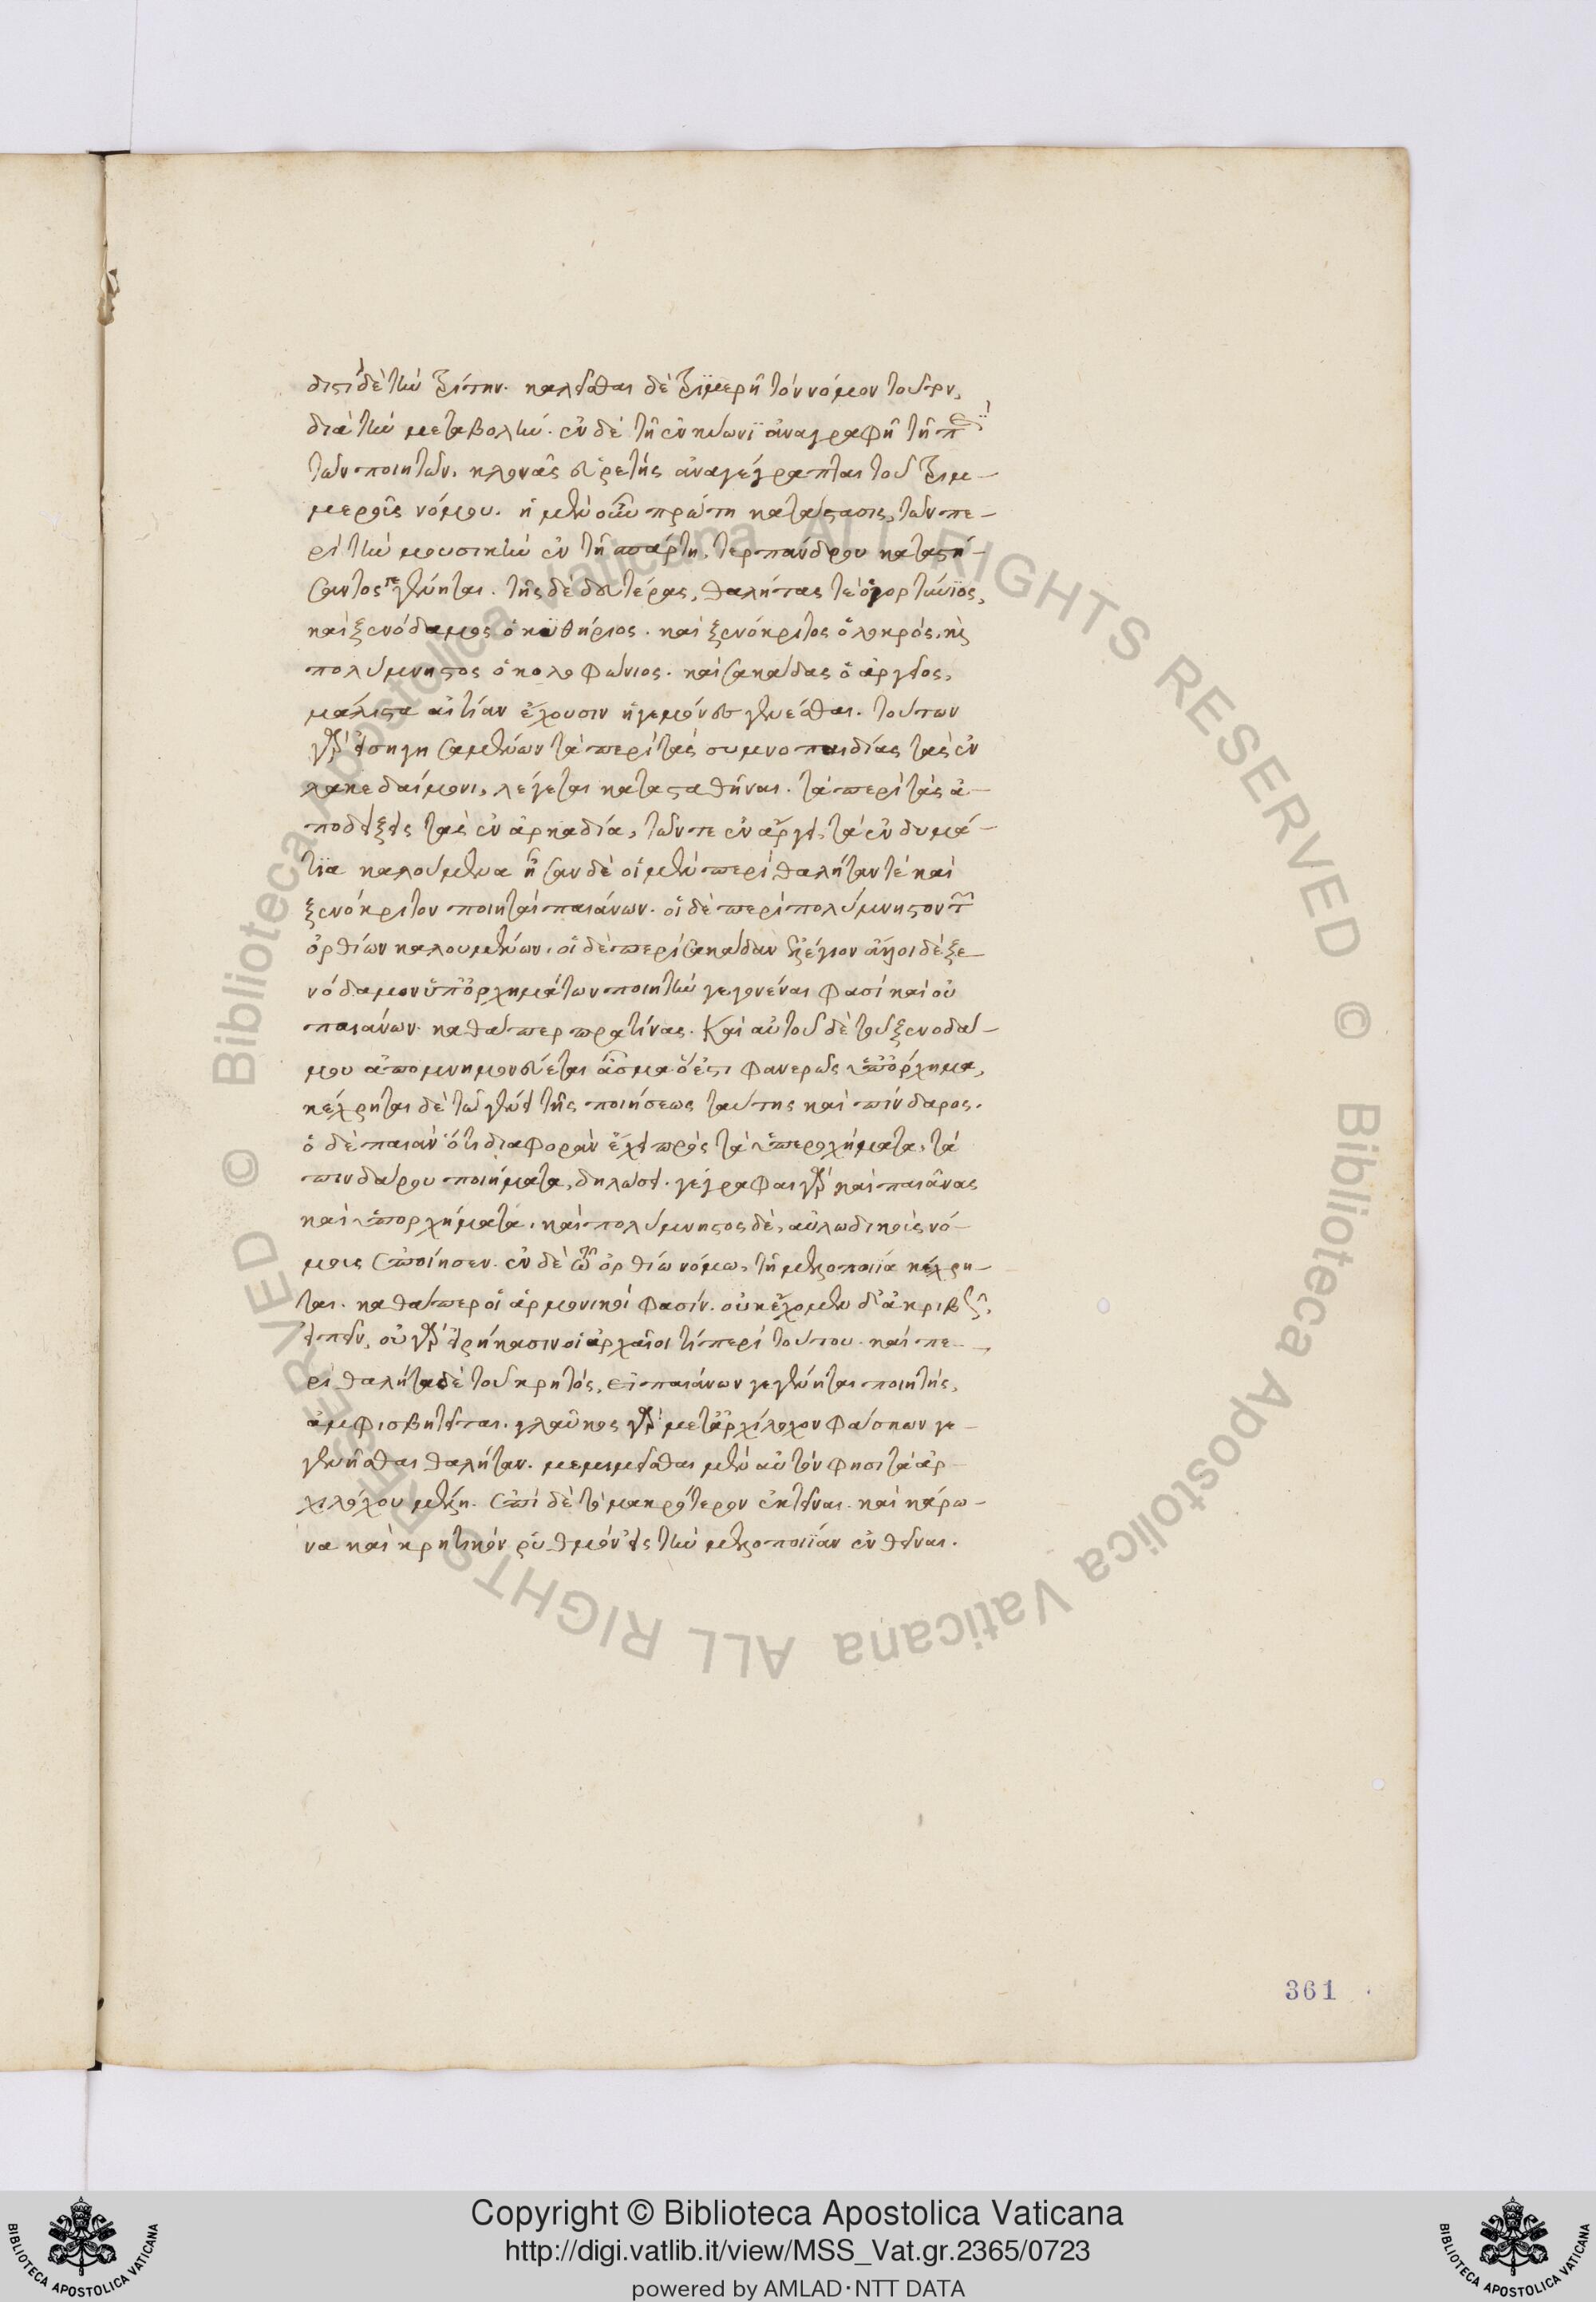 διστὶ δὲ τὴν τρίτην. καλεῖσθαι δὲ τριμερῆ τὸν νόμον τοῦτον,
διὰ τὴν μεταβολήν. ἐν δὲ τῇ ἐν σικυῶνϊ ἀναγραφῇ τῇ περὶ
τῶν ποιητῶν. κλονᾶς εὑρετὴς ἀναγέγραπται τοῦ τριμ-
μεροῦς νόμου. ἡ μὲν οὖν πρώτη κατάστασις, τῶν πε-
ρὶ τὴν μουσικὴν ἐν τῇ σπάρτῃ, τερπάνδρου καταστή-
σαντος γεγένηται. τῆς δὲ δευτέρας, θαλήτας τε ὁ γορτύνϊος,
καὶ ξενόδαμος ὁ κυθήριος. καὶ ξενόκριτος ὁ λοκρός. καὶ
πολύμνηστος ὁ κολοφώνιος. καὶ σακάδας ὁ ἀργεῖος,
μάλιστα αἰτίαν ἔχουσιν ἡγεμόνες γενέσθαι. τούτων
γὰρ εἰσηγησαμένων τὰ περὶ τὰς συμνοπαιδίας τὰς ἐν
λακεδαίμονι, λέγεται κατασταθῆναι. τὰ περὶ τὰς ἀ-
ποδείξεις τὰς ἐν ἀρκαδία, τῶν τε ἐν ἄργει, τὰ ἐν δυμά-
τϊα καλούμενα ἦσαν δὲ οἱ μὲν περὶ θαλήταν τὲ καὶ
ξενόκριτον ποιηταὶ παιάνων. οἱ δὲ περὶ πολύμνηστον τῶν
ὀρθίων καλουμένων. οἱ δὲ περὶ σακάδαν ἐλέγιον ἄλλοι δὲ ξε
νόδαμον ὑπορχημάτων ποιητὴν γεγονέναι φασὶ καὶ οὐ
παιάνων. καθάπερ πρατίνας. Καὶ αὐτοῦ δὲ τοῦ ξενοδά-
μου ἀπομνημονεύεται ᾆσμα ὅ ἐστι φανερῶς ὑπόρχημα,
κέχρηται δὲ τῷ γένει τῆς ποιήσεως ταύτης καὶ πίνδαρος.
ὁ δὲ παιὰν ὅτι διαφορὰν ἔχει πρὸς τὰ ὑπερχήματα, τὰ
πινδάρου ποιήματα, δηλώσει. γέγραφαι γὰρ καὶ παιᾶνας
καὶ ὑπορχήματα. καὶ πολύμνηστος δὲ, αὐλωδικοὺς νό-
μους ἐποίησεν. ἐν δὲ τῷ ὀρθίω νόμω, τῇ μελοποιία κέχρη-
ται. καθάπερ οἱ ἁρμονικοί φασίν. οὐκ ἔχομεν δ' ἀκριβῶς
εἰπεῖν, οὐ γὰρ εἰρήκασιν οἱ ἀρχαῖοι τὶ περὶ τούτου. καὶ πε-
ρὶ θαλήτα δὲ τοῦ κρητός, εἰ παιάνων γεγένηται ποιητής,
ἀμφισβητεῖται. γλαῦκος γὰρ μετ' ἀρχίλοχον φάσκων γε-
γενῆσθαι θαλήταν. μεμιμεῖσθαι μὲν αὐτόν φησι τὰ ἀρ-
χιλόχου μέλη. ἐπὶ δὲ τὸ μακρότερον ἐκτεῖναι. καὶ κάρω-
να καὶ κρητικὸν ῥυθμὸν εἰς τὴν μελοποιϊάν ἐνθεῖναι.
361
Copyright © Biblioteca Apostolica Vaticana
http://digi.vatlib.it/view/MSS_Vat.gr.2365/0723
powered by AMLAD·NTT DATA